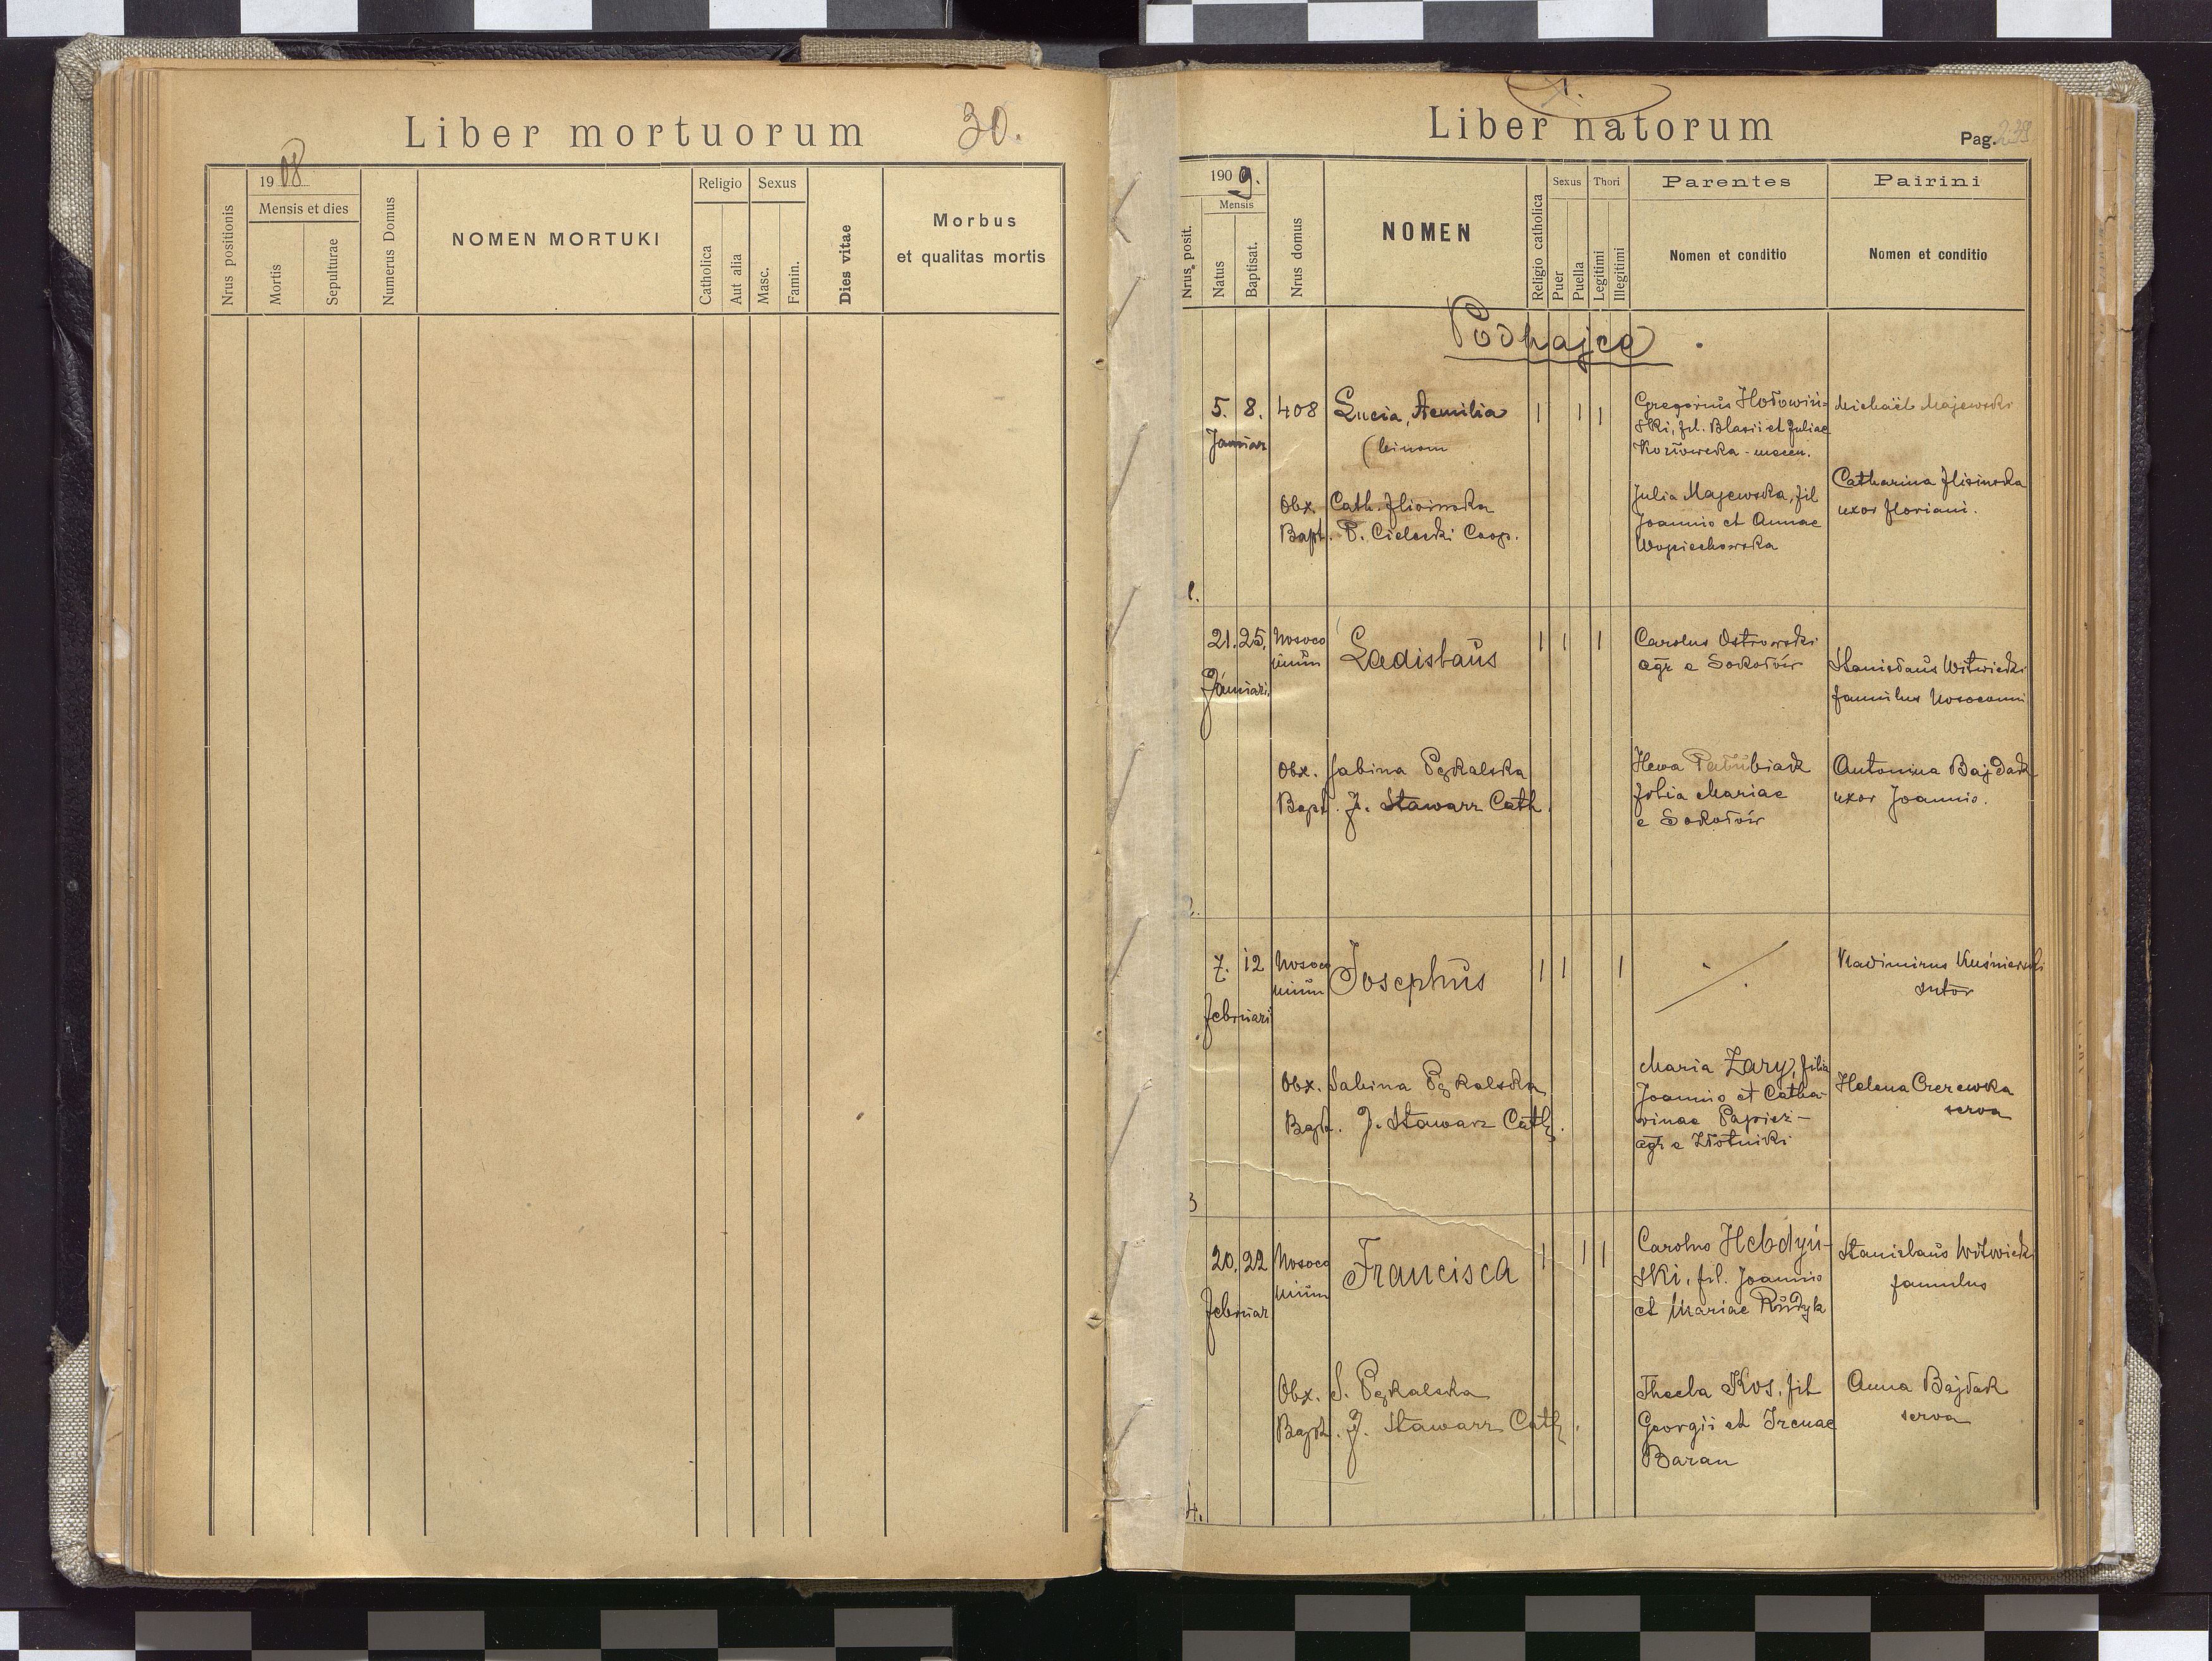 Liber mortuorum
30.
1908
Mensis et dies
Nrus positionis
Mortis
Sepulturae
Numerus Domus
NOMEN MORTUKI
Religio
Catholica
Aut alia
Sexus
Masc.
Famin.
Dies vitae
Morbus
et qualitas mortis
1.
Liber natorum
Pag. 239
1909.
Mensis
Nrus posit.
Natus
Baptisat.
Nrus domus
NOMEN
Religio catholica
Sexus
Puer
Puella
Thori
Legitimi
Illegitimi
Parentes
Nomen et conditio
Pairini
Nomen et conditio
Podhajce.
1.
5. 8.
Januar
408
Lucia, Aemilia
(binom
Obx. Cath. Flisinska
Bapt. P. Cielecki Coop.
Gregorius Hołowiń-
ski, fil. Blasii et Juliae
Julia Majewska, fil
Joannis et Annae
Wojciechowska
Michaël Majewski
Catharina Flisinska
uxor Floriani.
2.
21. 25.
Januari
Nosoco
mium
Ladislaus
Obx. Sabina Pękalska
Bapt. J. Stawarz Cath.
Carolus Ostrowski
agr e Sokołów
Hewa
filia Mariae
e Sokołów
Stanislaus Witwicki
famulus Nosocomii
Antonina Bajdak
uxor Joannis.
3
7. 12
Februari
Nosoco
mium
Josephus
Obx. Sabina Pękalska
Bapt. J. Stawarz Cath.
Maria Zary, filia
Joannis et Catha-
rinae Papież-
agr e Złotniki
Vladimirus Kuśnierski
sutor
Helena Czerewka
serva
4.
20. 22
Februar
Nosoco
mium
Francisca
Obx. S. Pękalska
Bapt. J. Stawarz Cath.
Carolus Hebdyń-
ski, fil. Joannis
et Mariae Rudyk
Thecla Kos, fil
Georgii et Irenae
Baran
Stanislaus Witwicki
famulus
Anna Bajdak
serva